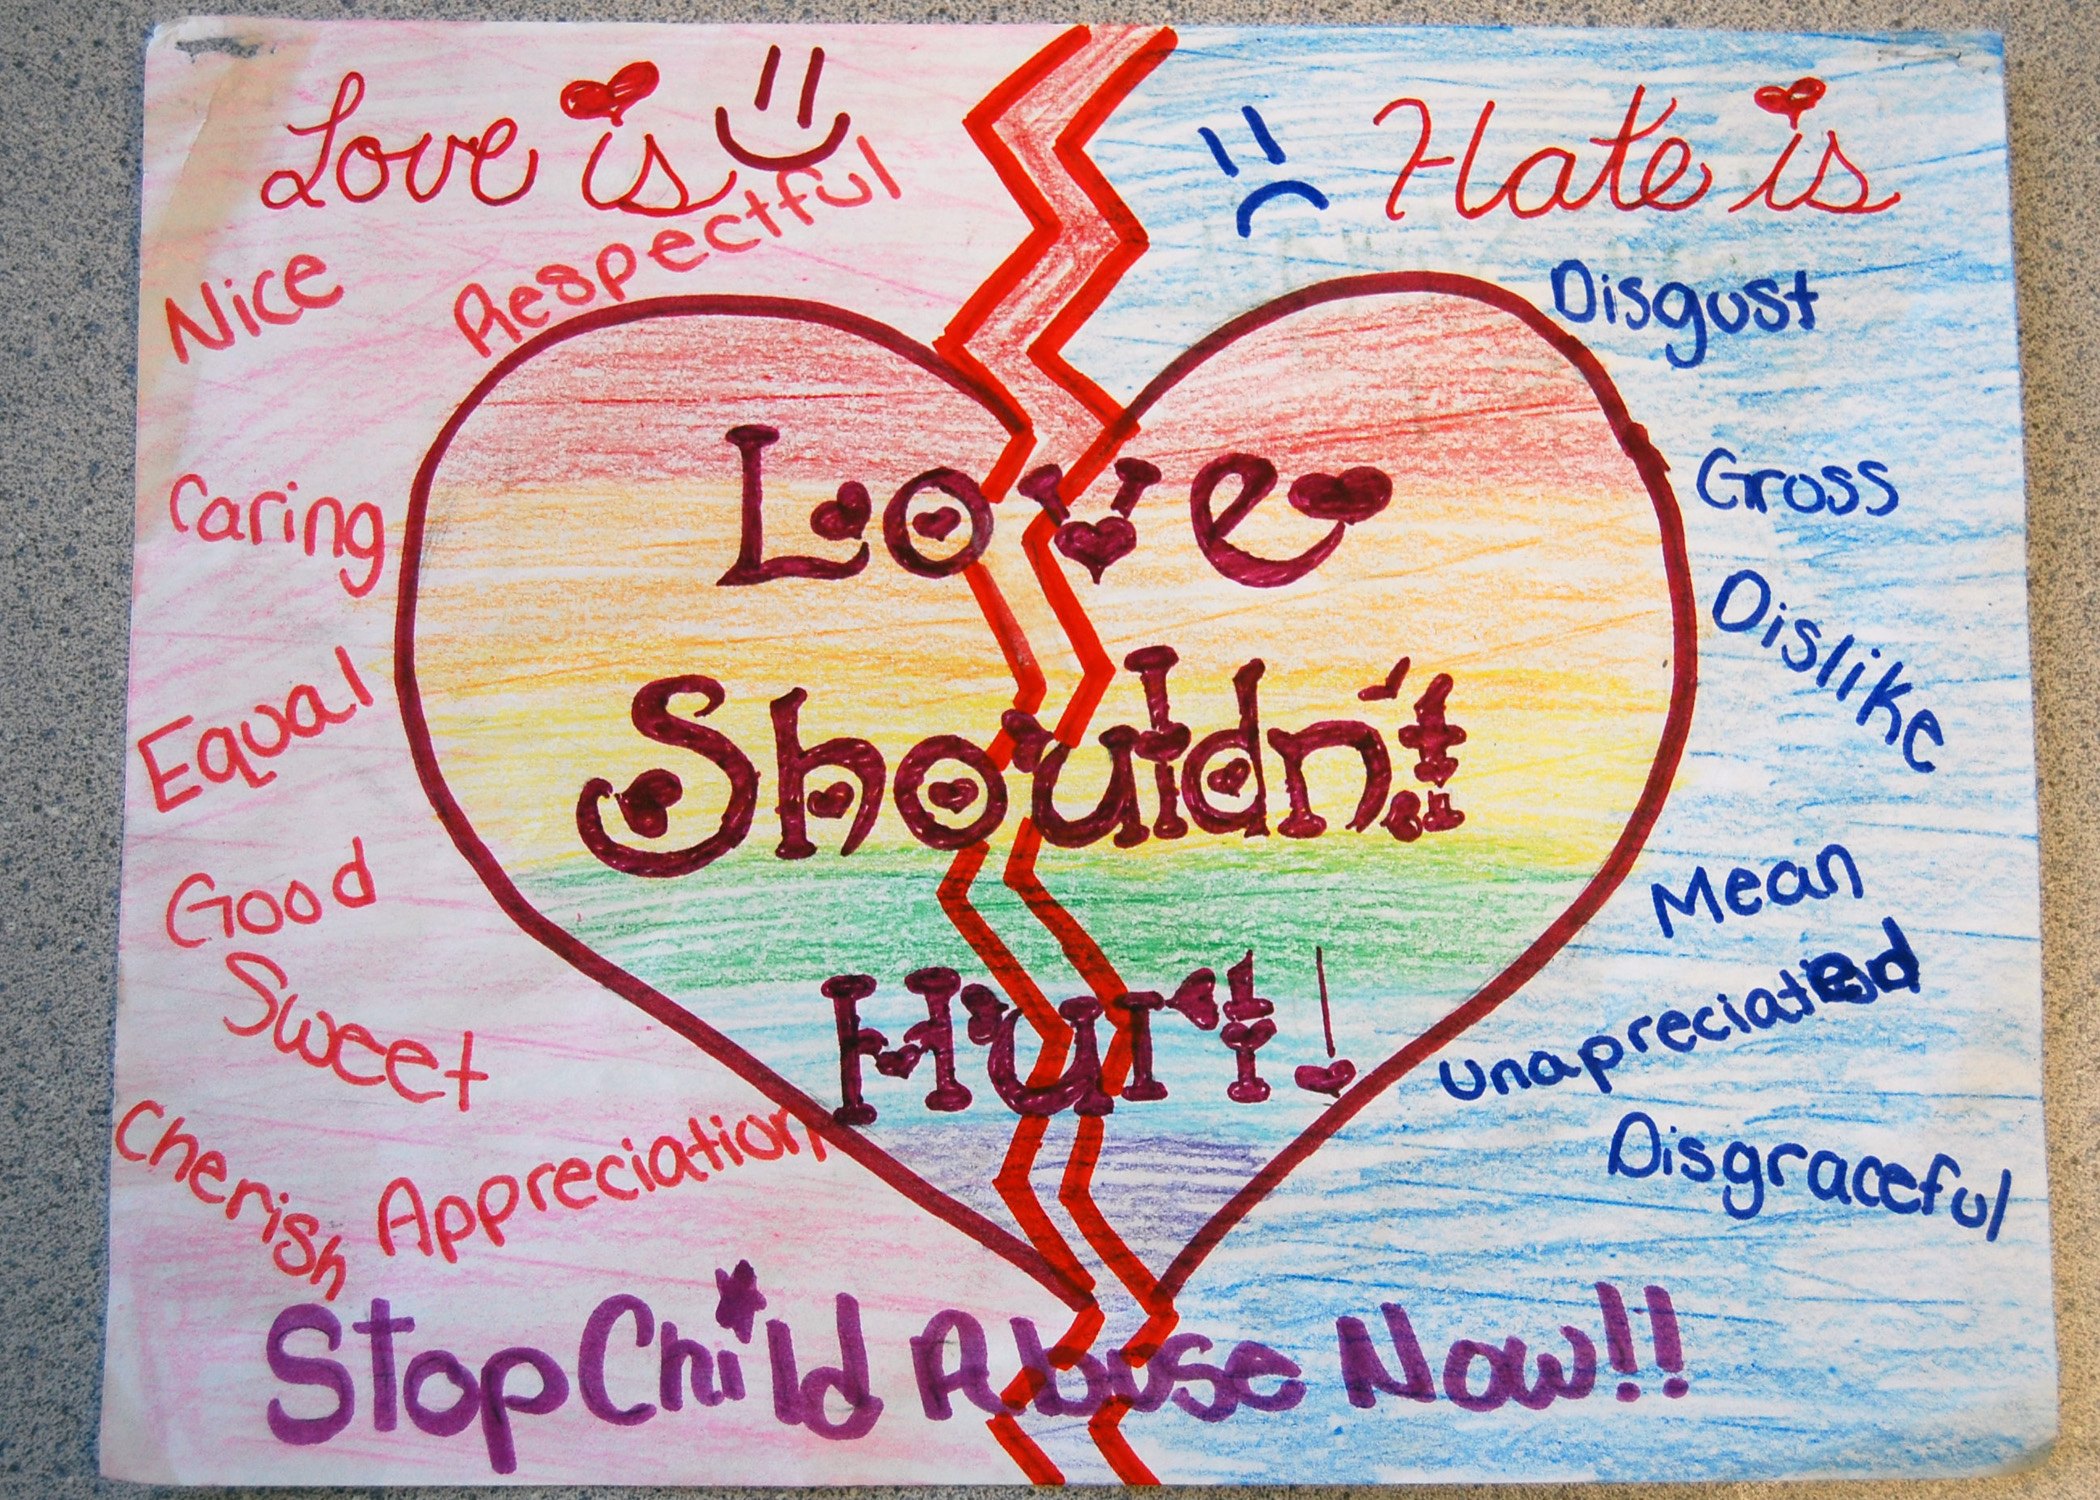 Love is
Respectful
Nice
Caring
Equal
Good
Sweet
Cherish
Appreciation
Hate is
Disgust
Gross
Dislike
Mean
unapreciated
Disgraceful
Love
Shouldn't
Hurt!
Stop Child Abuse Now!!